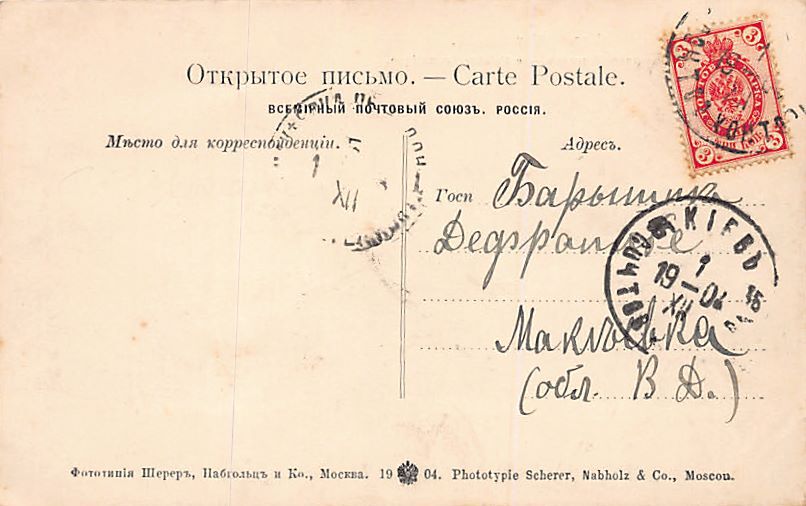 Открытое письмо. — Carte Postale.
ВСЕМІРНЫЙ ПОЧТОВЫЙ СОЮЗЪ. РОССІЯ.
Мѣсто для корреспонденціи.
Адресъ.
3 3
3 3
1
XII
Госп Барышнѣ
КІЕВЪ
1
19—04
XII
Макѣевка
(обл. В. Д.)
Фототипія Шереръ, Набгольцъ и Ко., Москва. 19 04. Phototypie Scherer, Nabholz & Co., Moscou.